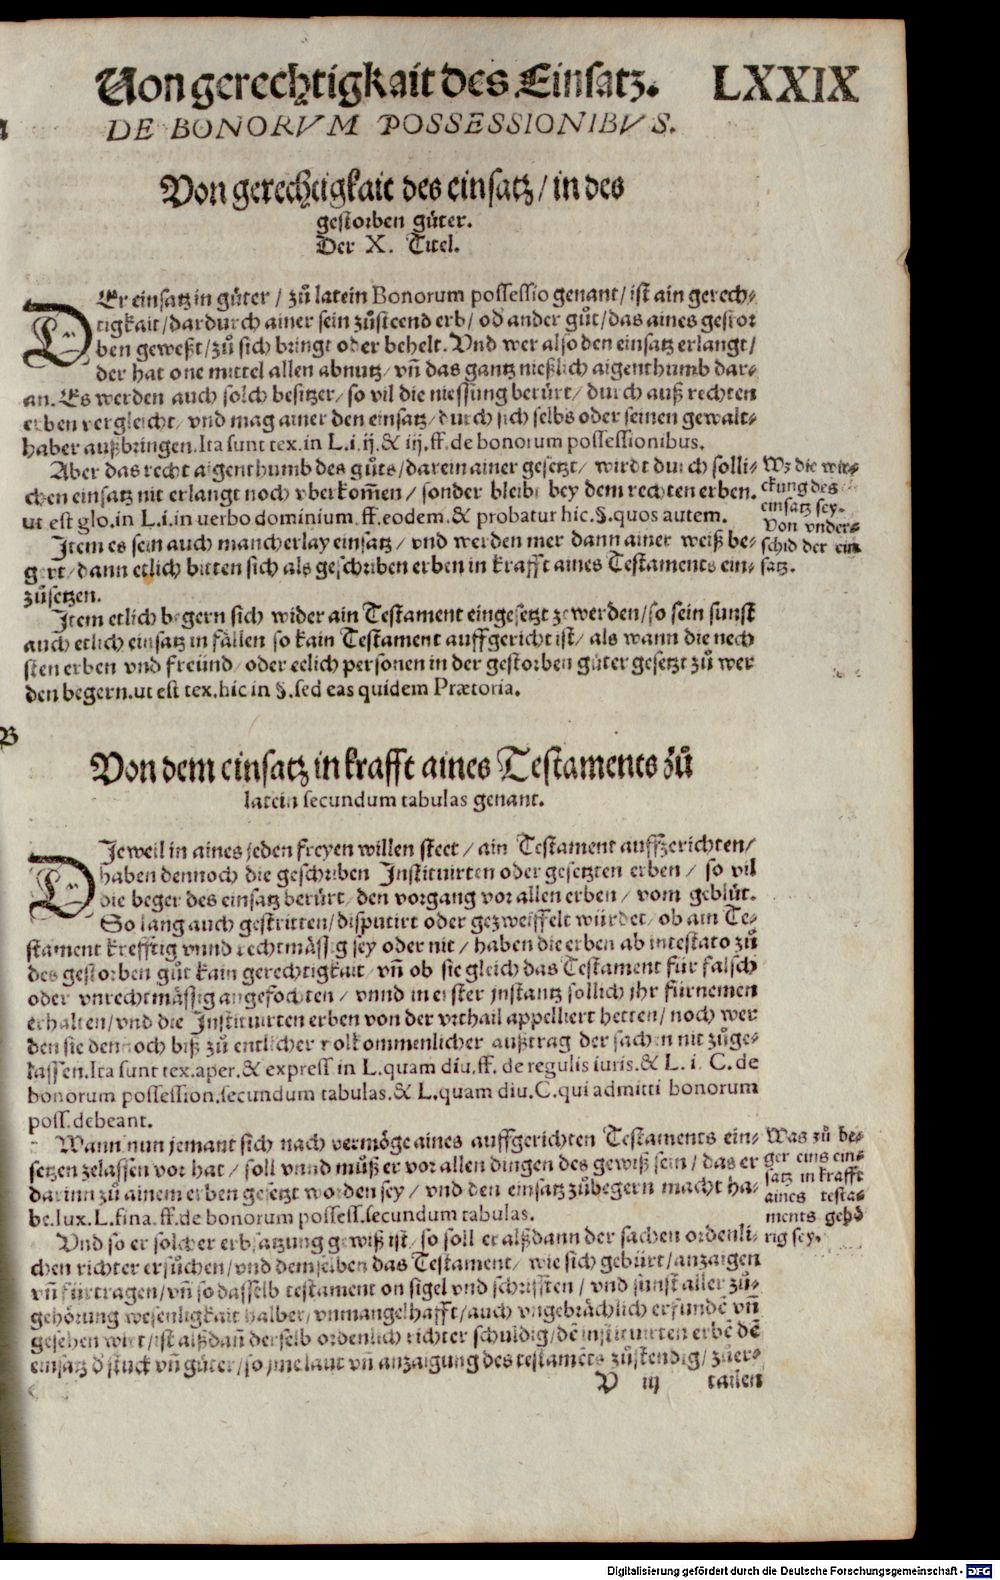 Von gerechtigkait des Einsatz. LXXIX
DE BONORVM POSSESSIONIBVS.
Von gerechtigkait des einsatz / in des
gestorben gůter.
Der X. Titel.
DEr einsatz in gůter / zů latein Bonorum possessio genant / ist ain gerech-
tigkait / dardurch ainer sein zůsteend erb / od ander gůt / das aines gestor
ben geweßt / zů sich bringt oder behelt. Vnd wer also den einsatz erlangt /
der hat one mittel allen abnutz / vñ das gantz nießlich aigenthumb dar-
an. Es werden auch solch besitzer / so vil die niessung berürt / durch auß rechten
erben vergleicht / vnd mag ainer den einsatz / durch sich selbs oder seinen gewalt-
haber außbringen. Ita sunt tex. in L. i. ij. & iij. ff. de bonorum possessionibus.
Aber das recht aigenthumb des gůts / darein ainer gesetzt / wirdt durch solli-
chen einsatz nit erlangt noch vberkom̃en / sonder bleibt bey dem rechten erben.
ut est glo. in L. i. in uerbo dominium. ff. eodem. & probatur hic. §. quos autem.
Item es sein auch mancherlay einsatz / vnd werden mer dann ainer weiß be-
gert / dann etlich bitten sich als geschriben erben in krafft aines Testaments ein-
zůsetzen.
Wz die wir-
ckung des
einsatz sey.
Von vnder-
schid der ein
satz.
Item etlich begern sich wider ain Testament eingesetzt zewerden / so sein sunst
auch etlich einsatz in fällen so kain Testament auffgericht ist / als wann die nech
sten erben vnd freünd / oder eelich personen in der gestorben gůter gesetzt zů wer
den begern. ut est tex. hic in §. sed eas quidem Prætoria.
B
Von dem einsatz in krafft aines Testaments zů
latein secundum tabulas genant.
DIeweil in aines jeden freyen willen steet / ain Testament auffzerichten /
haben dennoch die geschriben Instituirten oder gesetzten erben / so vil
die beger des einsatz berürt / den vorgang vor allen erben / vom geblůt.
So lang auch gestritten / disputirt oder gezweiffelt würdet / ob ain Te-
stament krefftig vnnd rechtmässig sey oder nit / haben die erben ab intestato zů
des gestorben gůt kain gerechtigkait / vñ ob sie gleich das Testament für falsch
oder vnrechtmässig angefochten / vnnd in erster jnstantz sollich jhr fürnemen
erhalten / vnd die Instituirten erben von der vrthail appelliert hetten / noch wer
den sie dennoch biß zů entlicher volkommenlicher außtrag der sachen nit zůge-
lassen. Ita sunt tex. aper. & express. in L. quam diu. ff. de regulis iuris. & L. i. C. de
bonorum possession. secundum tabulas. & L. quam diu. C. qui admitti bonorum
poss. debeant.
Wann nun jemant sich nach vermöge aines auffgerichten Testaments ein-
setzen zelassen vor hat / soll vnnd můß er vor allen dingen des gewiß sein / das er
darinn zů ainem erben gesetzt worden sey / vnd den einsatz zůbegern macht ha-
be. Iux. L. fina. ff. de bonorum possess. secundum tabulas.
Was zů be-
ger eins ein-
satz in krafft
aines testa-
ments gehö
rig sey.
Vnd so er solcher erbsatzung gewiß ist / so soll er alßdann der sachen ordenli-
chen richter ersůchen / vnd demselben das Testament / wie sich gebürt / anzaigen
vñ fürtragen / vñ so dasselb testament on sigel vnd schrifften / vnd sunst aller zů-
gehörung wesenligkait halber / vnmangelhafft / auch vngebrächlich erfundẽ vñ
gesehen wirt / ist alßdañ derselb ordenlich richter schuldig / dẽ instituirten erbẽ dẽ
einsatz ð stuck vñ gůter / so jme laut vñ anzaigung des testamẽts zůstendig / zůer-
V iij tailen
Digitalisierung gefördert durch die Deutsche Forschungsgemeinschaft - DFG